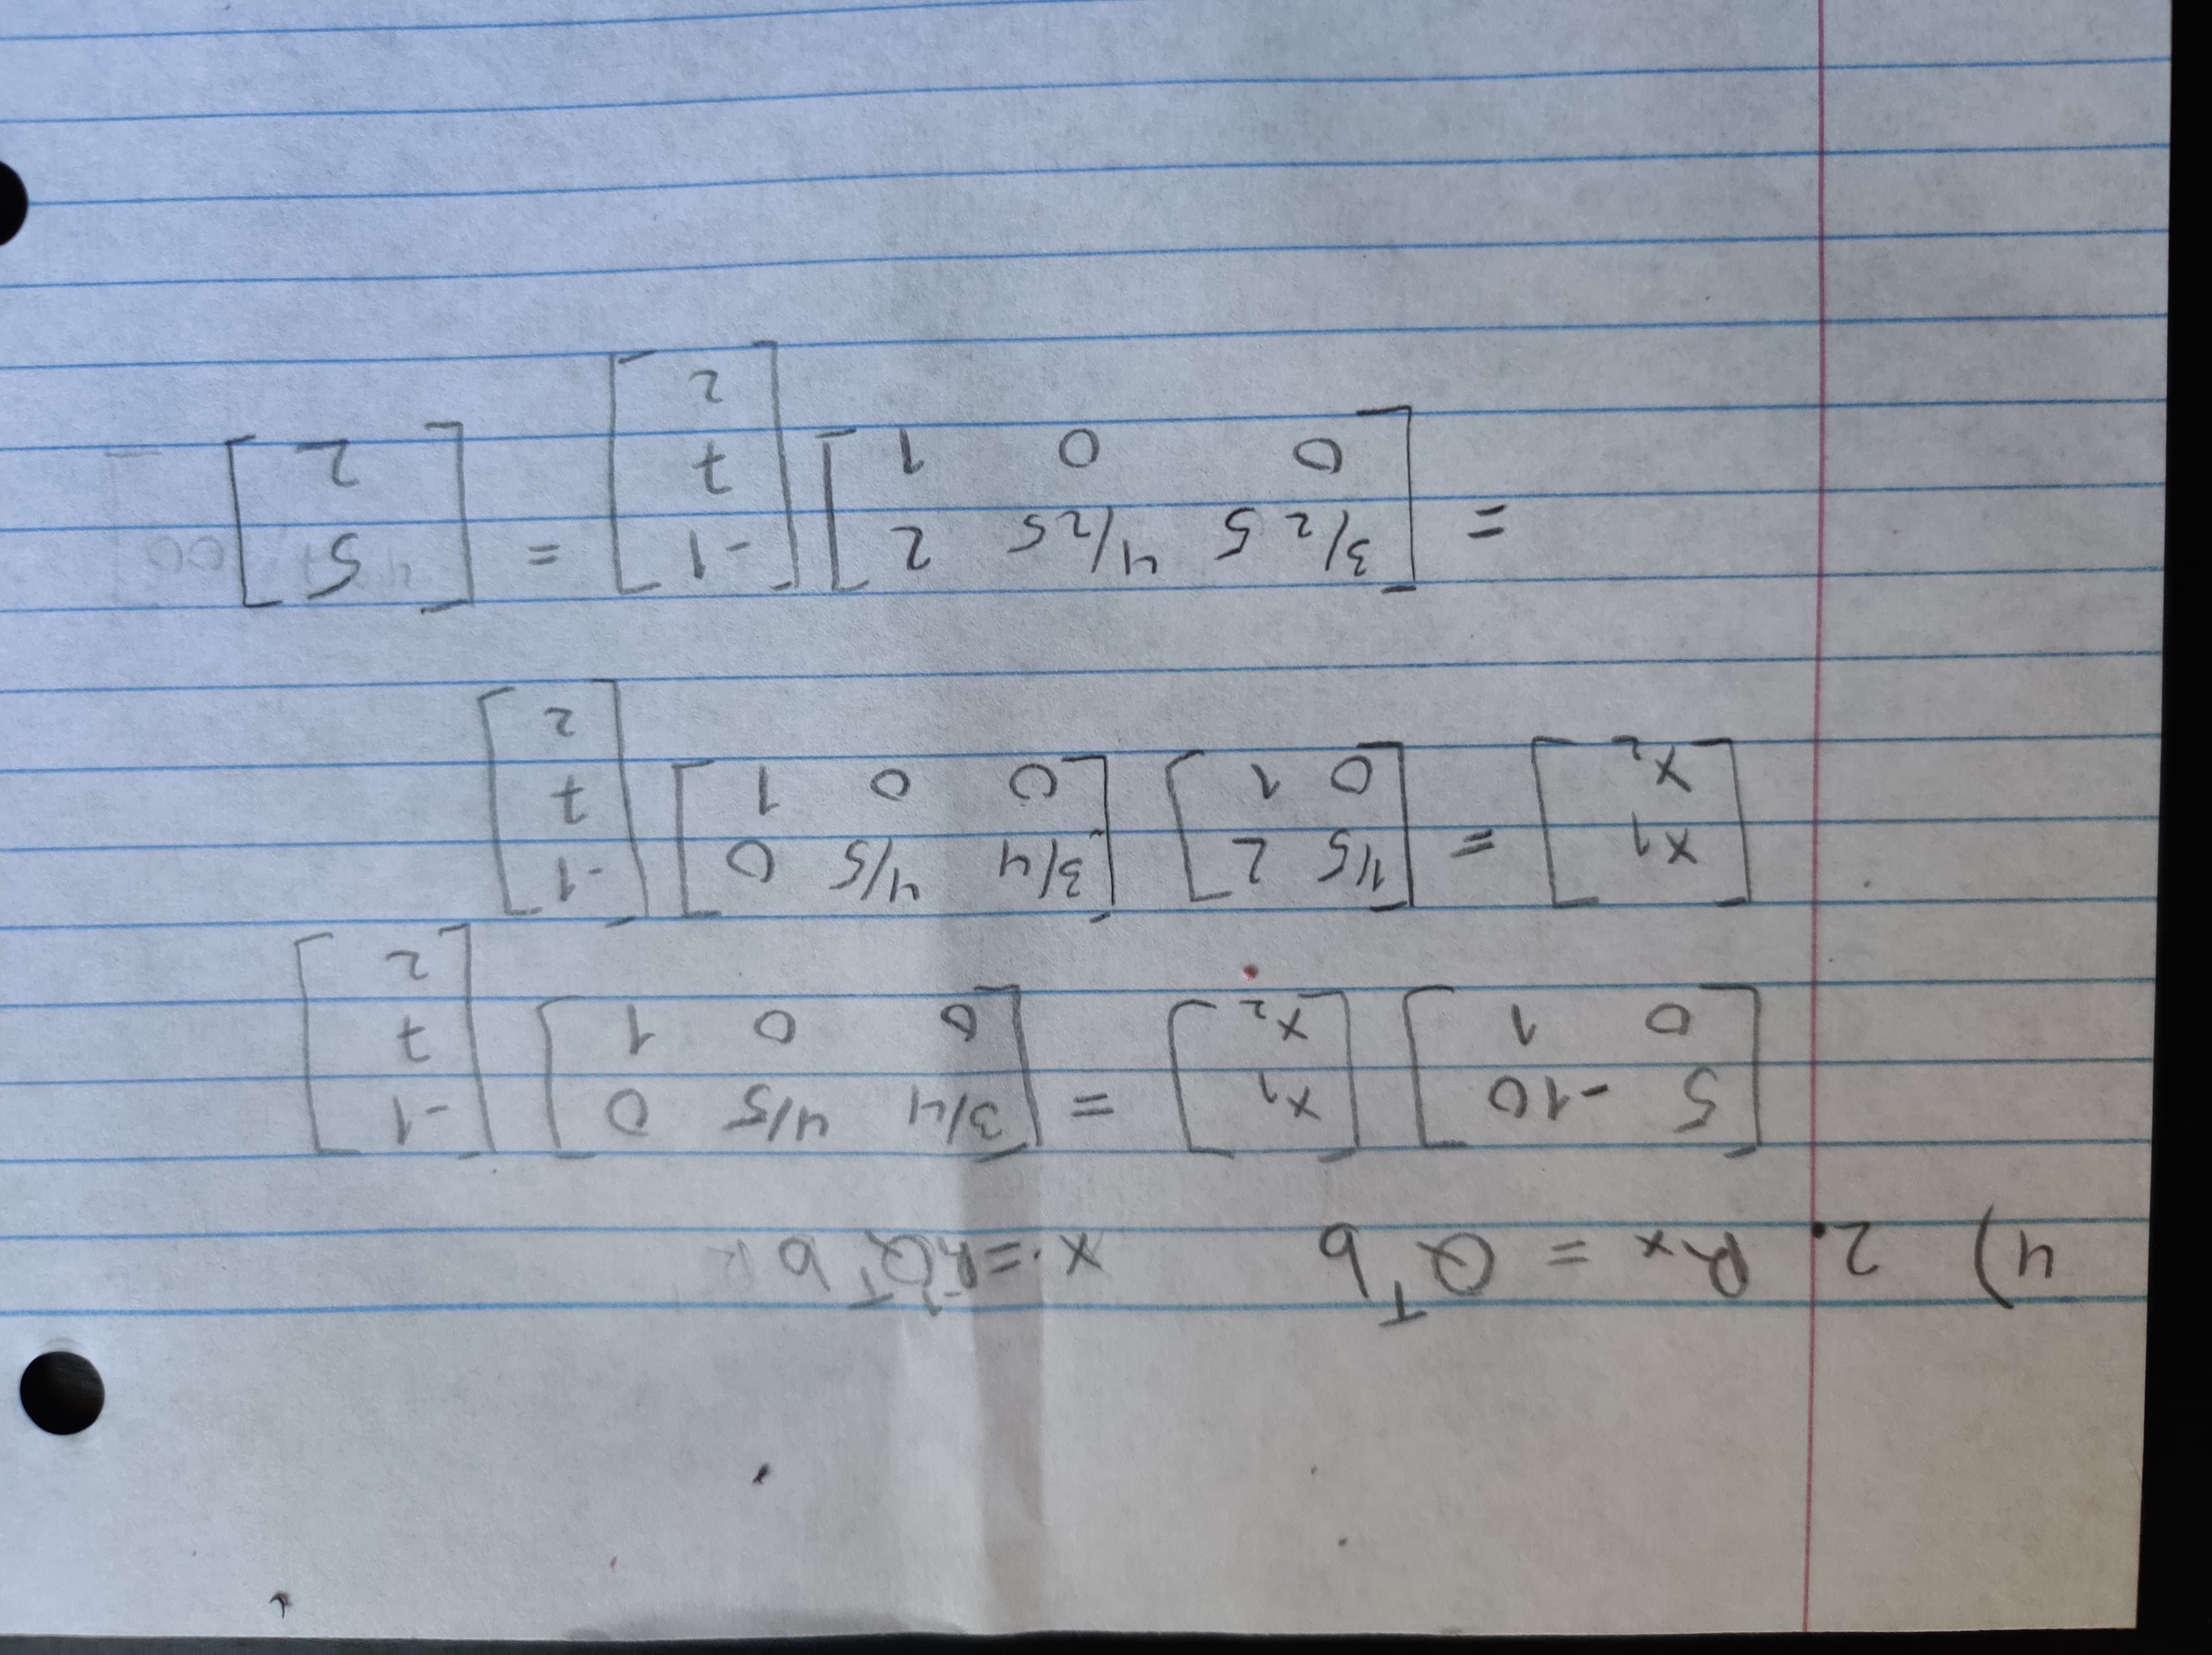 4) 2. Rx = Qᵀb x = R⁻¹Qᵀ b R
[5 -10; 0 1] [x₁; x₂] = [3/4 4/5 0; 0 0 1] [-1; 7; 2]
[x₁; x₂] = [1/5 2; 0 1] [3/4 4/5 0; 0 0 1] [-1; 7; 2]
= [3/25 4/25 2; 0 0 1] [-1; 7; 2] = [5; 2]